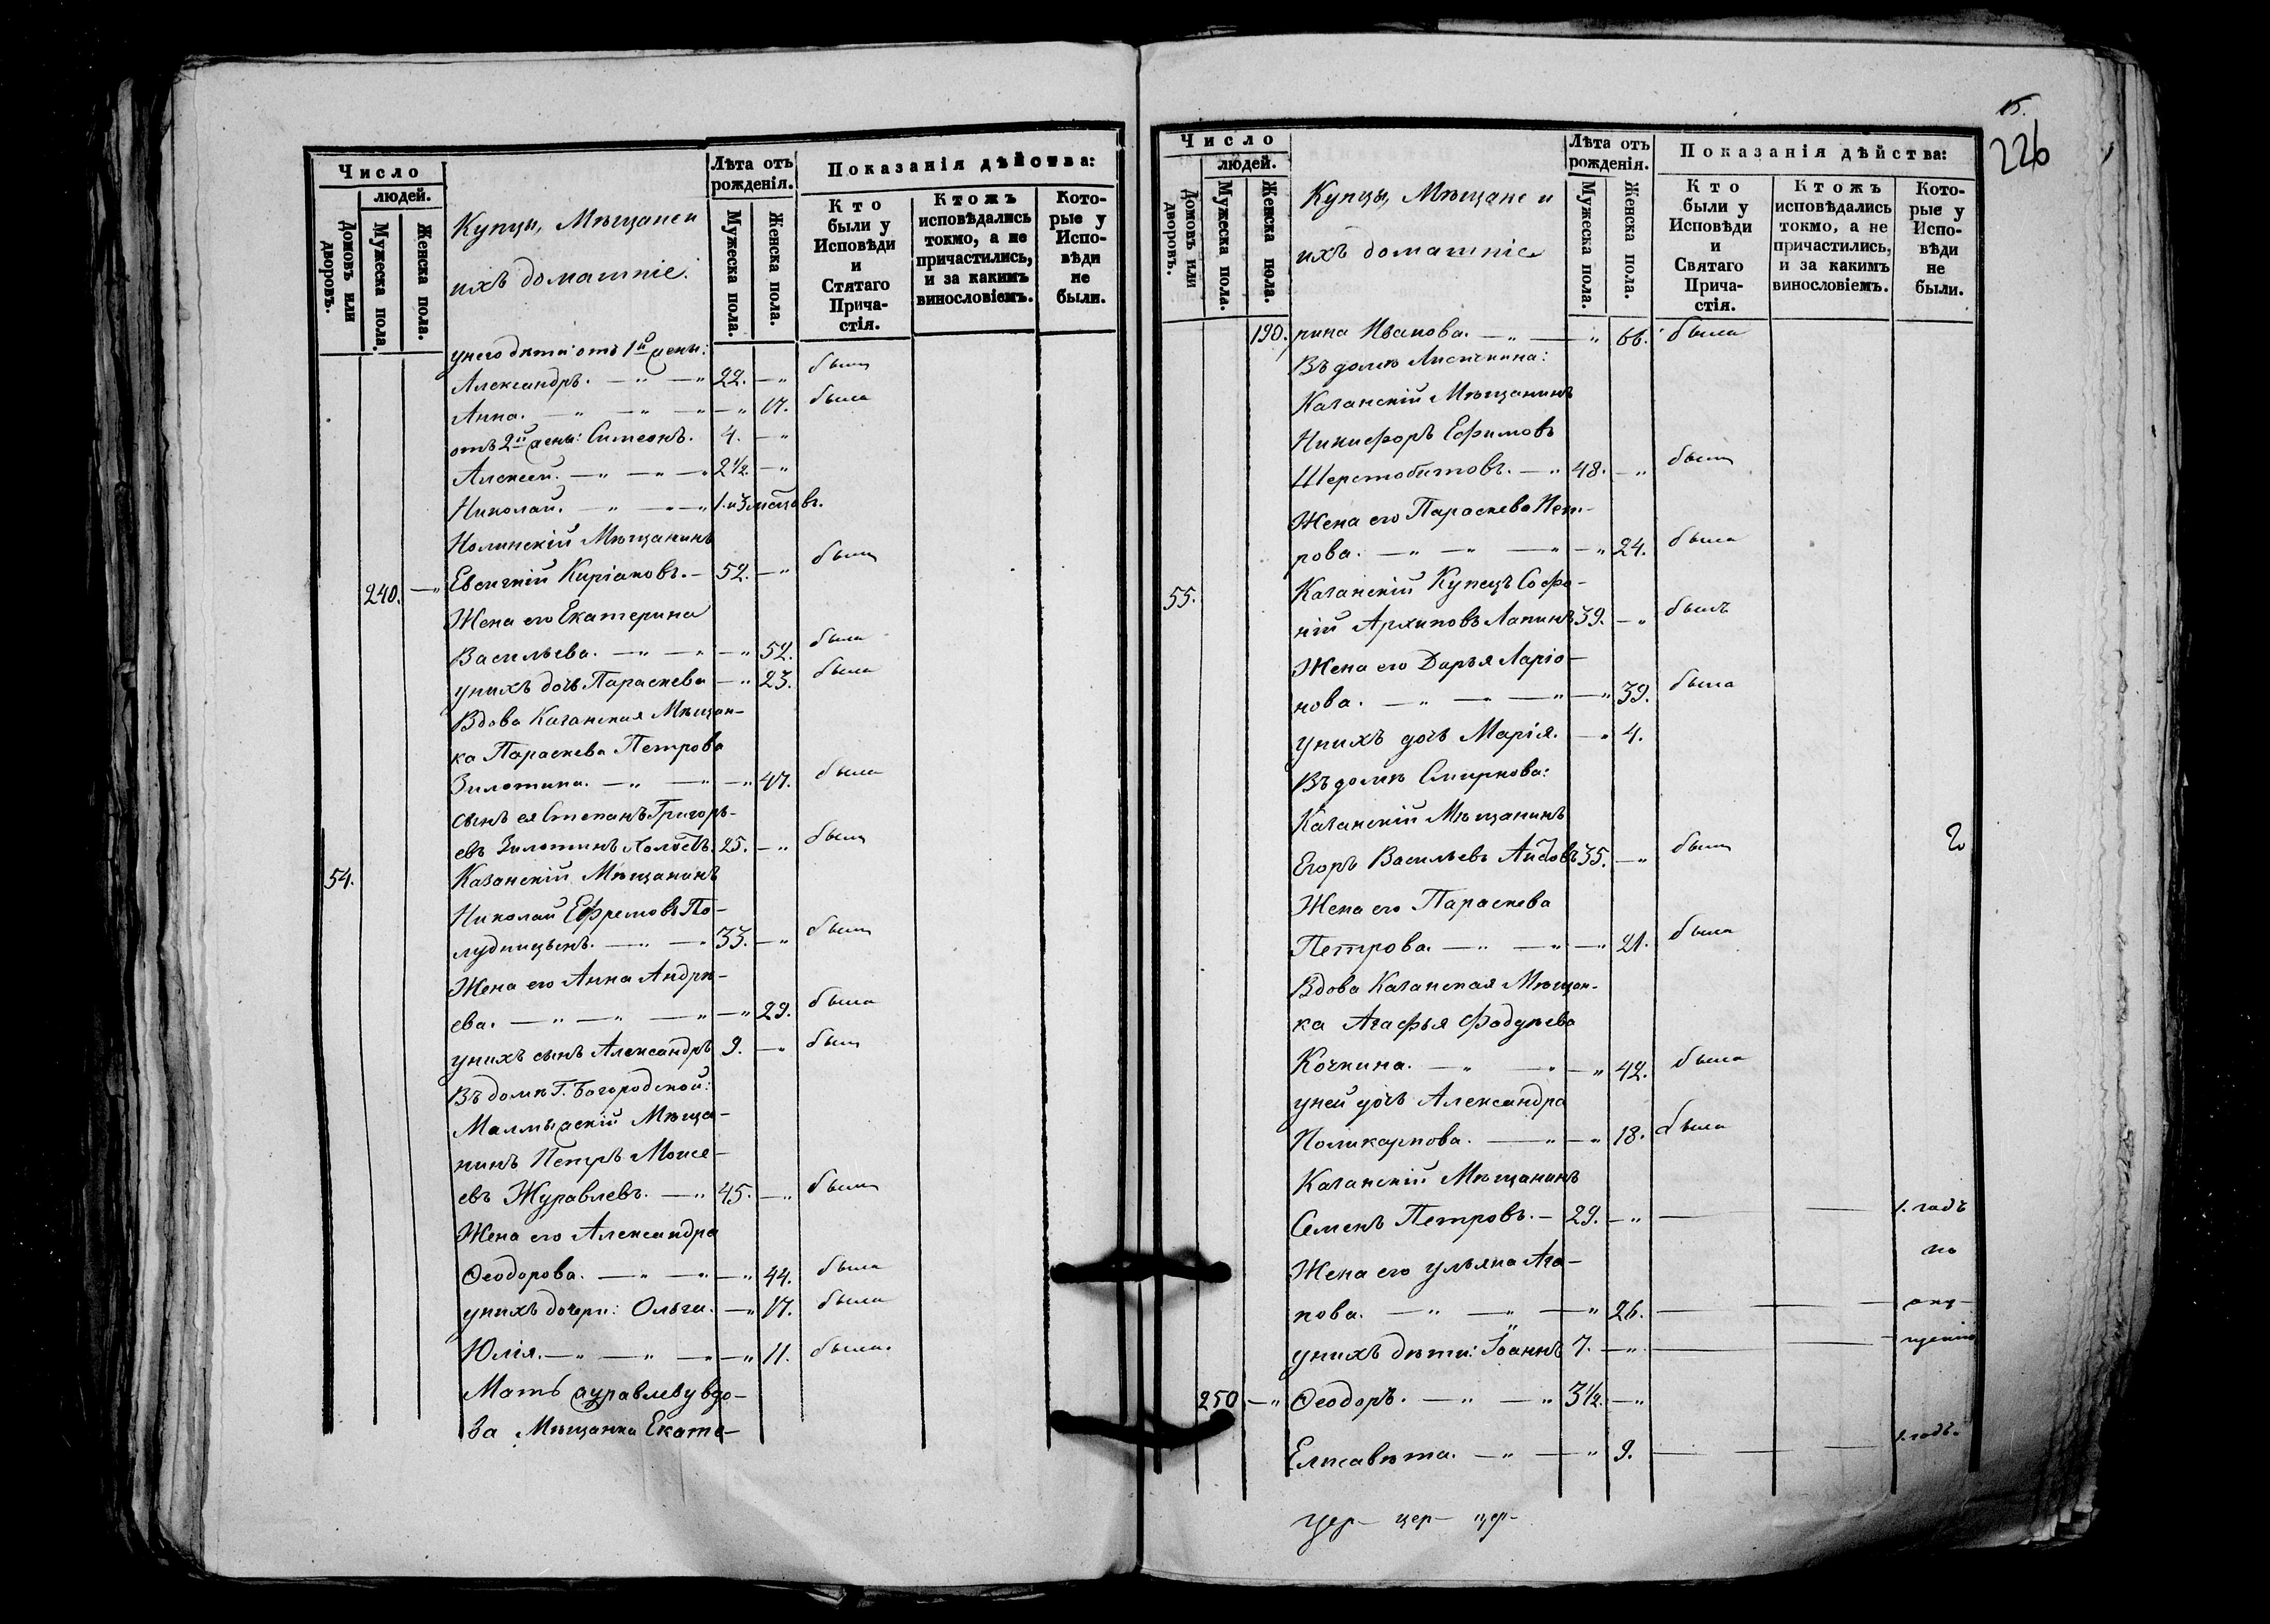 Число
людей.
Домовъ или дворовъ.
Мужеска пола.
Женска пола.
Купцы, Мѣщане и
ихъ домашніе.
Лѣта отъ рожденія.
Мужеска пола.
Женска пола.
Показанія дѣйства:
Кто были у Исповѣди и Стятаго Причастія.
Ктожъ исповѣдались токмо, а не причастились, и за какимъ винословіемъ.
Которые у Исповѣди не были.
у него дѣти: отъ 1й жены:
Александръ. — " — " 22. — " былъ
Анна. — " — " — " — " 17. была
отъ 2й жены: Симеонъ. 4. — "
Алексей. — " — " — " 2½ — "
Николай. — " — " 1 и 3 месяцовъ.
Нолинскій Мѣщанинъ
240. — " Евсигній Киріаковъ. — 52. — " былъ
Жена его Екатерина
Васильева. — " — " — " 52. была
у нихъ дочь Параскева — " 23. была
Вдова Казанская Мѣщан-
ка Параскева Петрова
Зилотина. — " — " — " 47. была
сынъ ея Степанъ Григорь-
евъ Зилотинъ Холостъ. 25. — " былъ
54. Казанскій Мѣщанинъ
Николай Ефремовъ По-
лудницынъ. — " — " 33. — " былъ
Жена его Анна Андрѣ-
ева. — " — " — " — " 29. была
у нихъ сынъ Александръ 9. — " былъ
Въ домѣ Г. Богородской:
Малмыжскій Мѣща-
нинъ Петръ Моисе-
евъ Журавлевъ. — " 45. — " былъ
Жена его Александра
Ѳеодорова. — " — " — " 44. была
у нихъ дочери: Ольга. — " 17. была
Юлія. — " — " — " — " 11. была.
Мать Журавлеву вдо-
ва Мѣщанка Екате-
15.
226
Число
людей.
Домовъ или дворовъ.
Мужеска пола.
Женска пола.
Купцы, Мѣщане и
ихъ домашніе
Лѣта отъ рожденія.
Мужеска пола.
Женска пола.
Показанія дѣйства:
Кто были у Исповѣди и Святаго Причастія.
Ктожъ исповѣдались токмо, а не причастились, и за какимъ винословіемъ.
Которые у Исповѣди не были.
190. рина Иванова. — " — " 66. была
Въ домѣ
Казанскій Мѣщанинъ
Никифоръ Ефимовъ
Шерстобитовъ. — " 48. — " былъ
Жена его Параскева Пет-
рова. — " — " — " — " 24. была
55. Казанскій Купецъ Софо-
ній Архиповъ Лапинъ 39. — " былъ
Жена его Дарья Ларіо-
нова. — " — " — " — " 39. была
у нихъ дочь Марія. — " 4.
Въ домѣ Смирнова:
Казанскій Мѣщанинъ
Егоръ Васильевъ 35. — " былъ 2
Жена его Параскева
Петрова. — " — " — " 21. была
Вдова Казанская Мѣщан-
ка Агафья Фадѣева
Кочкина. — " — " — " 42. была
у ней дочь Александра
Поликарпова. — " — " 18. была
Казанскій Мѣщанинъ
Семенъ Петровъ. — 29. — " — — 1. годъ
по
Жена его Ульяна Ага-
пова. — " — " — " 26. — — — опу-
у нихъ дѣти: Іоаннъ 7. — " — — щенію
250 — " Ѳеодоръ. — " — " 3½. — "
Елисавета. — " — " 9. — — — 1. годъ.
цер- цер- цер-